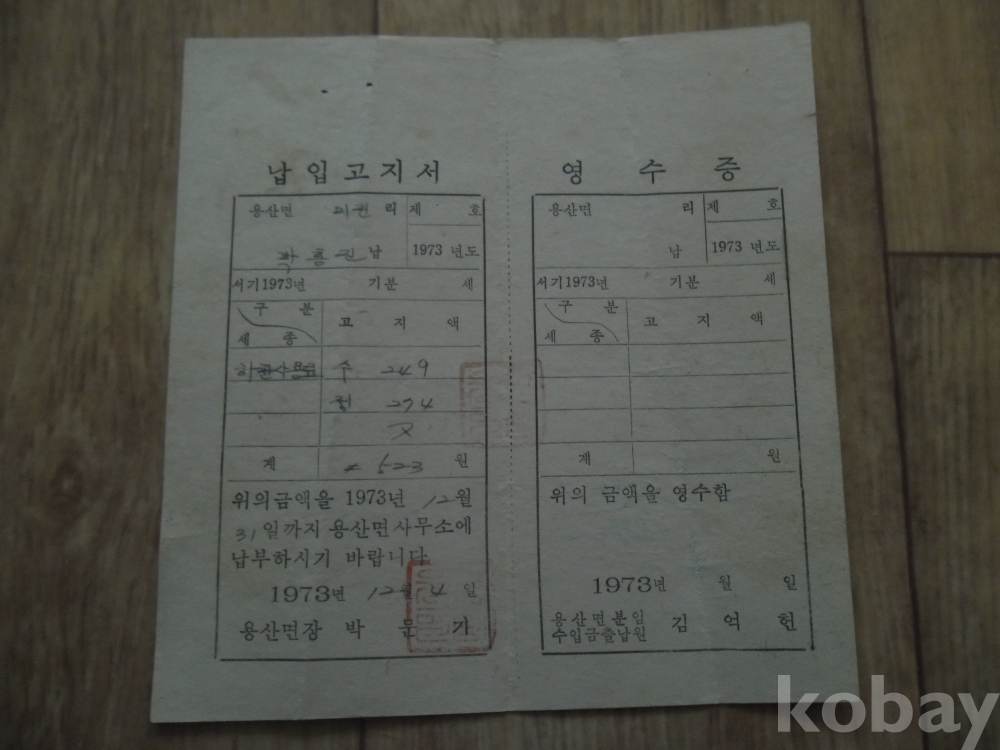 납입고지서
용산면 리 제 호
납 1973 년도
서기1973년 기분 세
구 분
고 지 액
세 종
수 249
전 274
523 원
계
위의금액을 1973년 12월
31일까지 용산면사무소에
납부하시기 바랍니다
1973년 12월 4일
용산면장 박 문 가
영 수 증
용산면 리 제 호
납 1973 년도
서기1973년 기분 세
구 분
고 지 액
세 종
계 원
위의 금액을 영수함
1973년 월 일
용산면분임
수입금출납원 김 억 헌
kobay